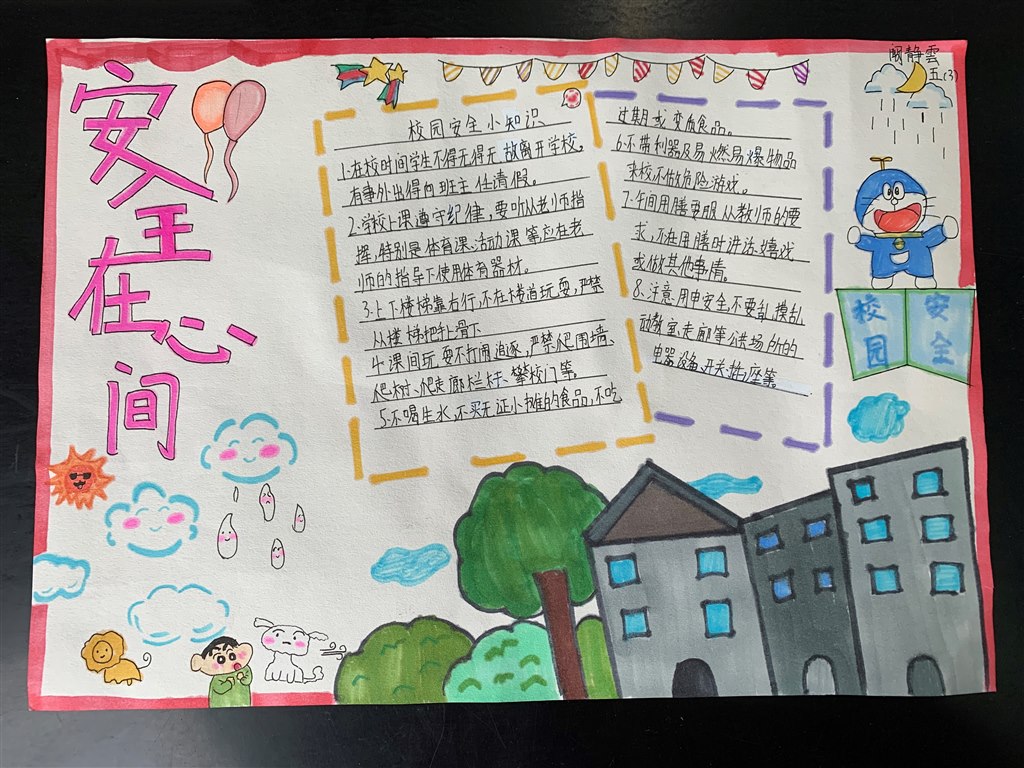 安全在心间
静雲
五(3)
校园安全小知识
1.在校时间学生不得无得无故离开学校。
有事外出得向班主任请假。
2.学校上课遵守纪律,要听从老师指
挥,特别是体育课、活动课等,应在老
师的指导下使用体育器材。
3.上下楼梯靠右行,不在楼道玩耍,严禁
从楼梯把扯滑下
4.课间玩耍不打闹追逐,严禁爬围墙、
爬树、爬走廊栏杆、攀校门等。
5.不喝生水,不买无证小摊的食品,不吃
过期或变质食品。
6.不带利器及易燃易爆物品
来校,不做危险游戏。
7.午间用膳要服从教师的要
求,不在用膳时讲话、嬉戏
或做其他事情。
8.注意用电安全,不要乱摸乱
动教室,走廊等公共场所的
电器设备、开关,插座等。
校园
安全